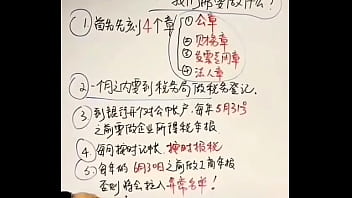 我们都要做什么？
① 首先先刻4个章
① 公章
② 财务章
③ 发票专用章
④ 法人章
② 一个月之内要到税务局做税务登记。
③ 到银行开个对公帐户，每年5月31号
之前要做企业所得税年报
④ 每月按时记帐，按时报税
⑤ 每年的6月30日之前做工商年报
否则将会拉入异常名单！